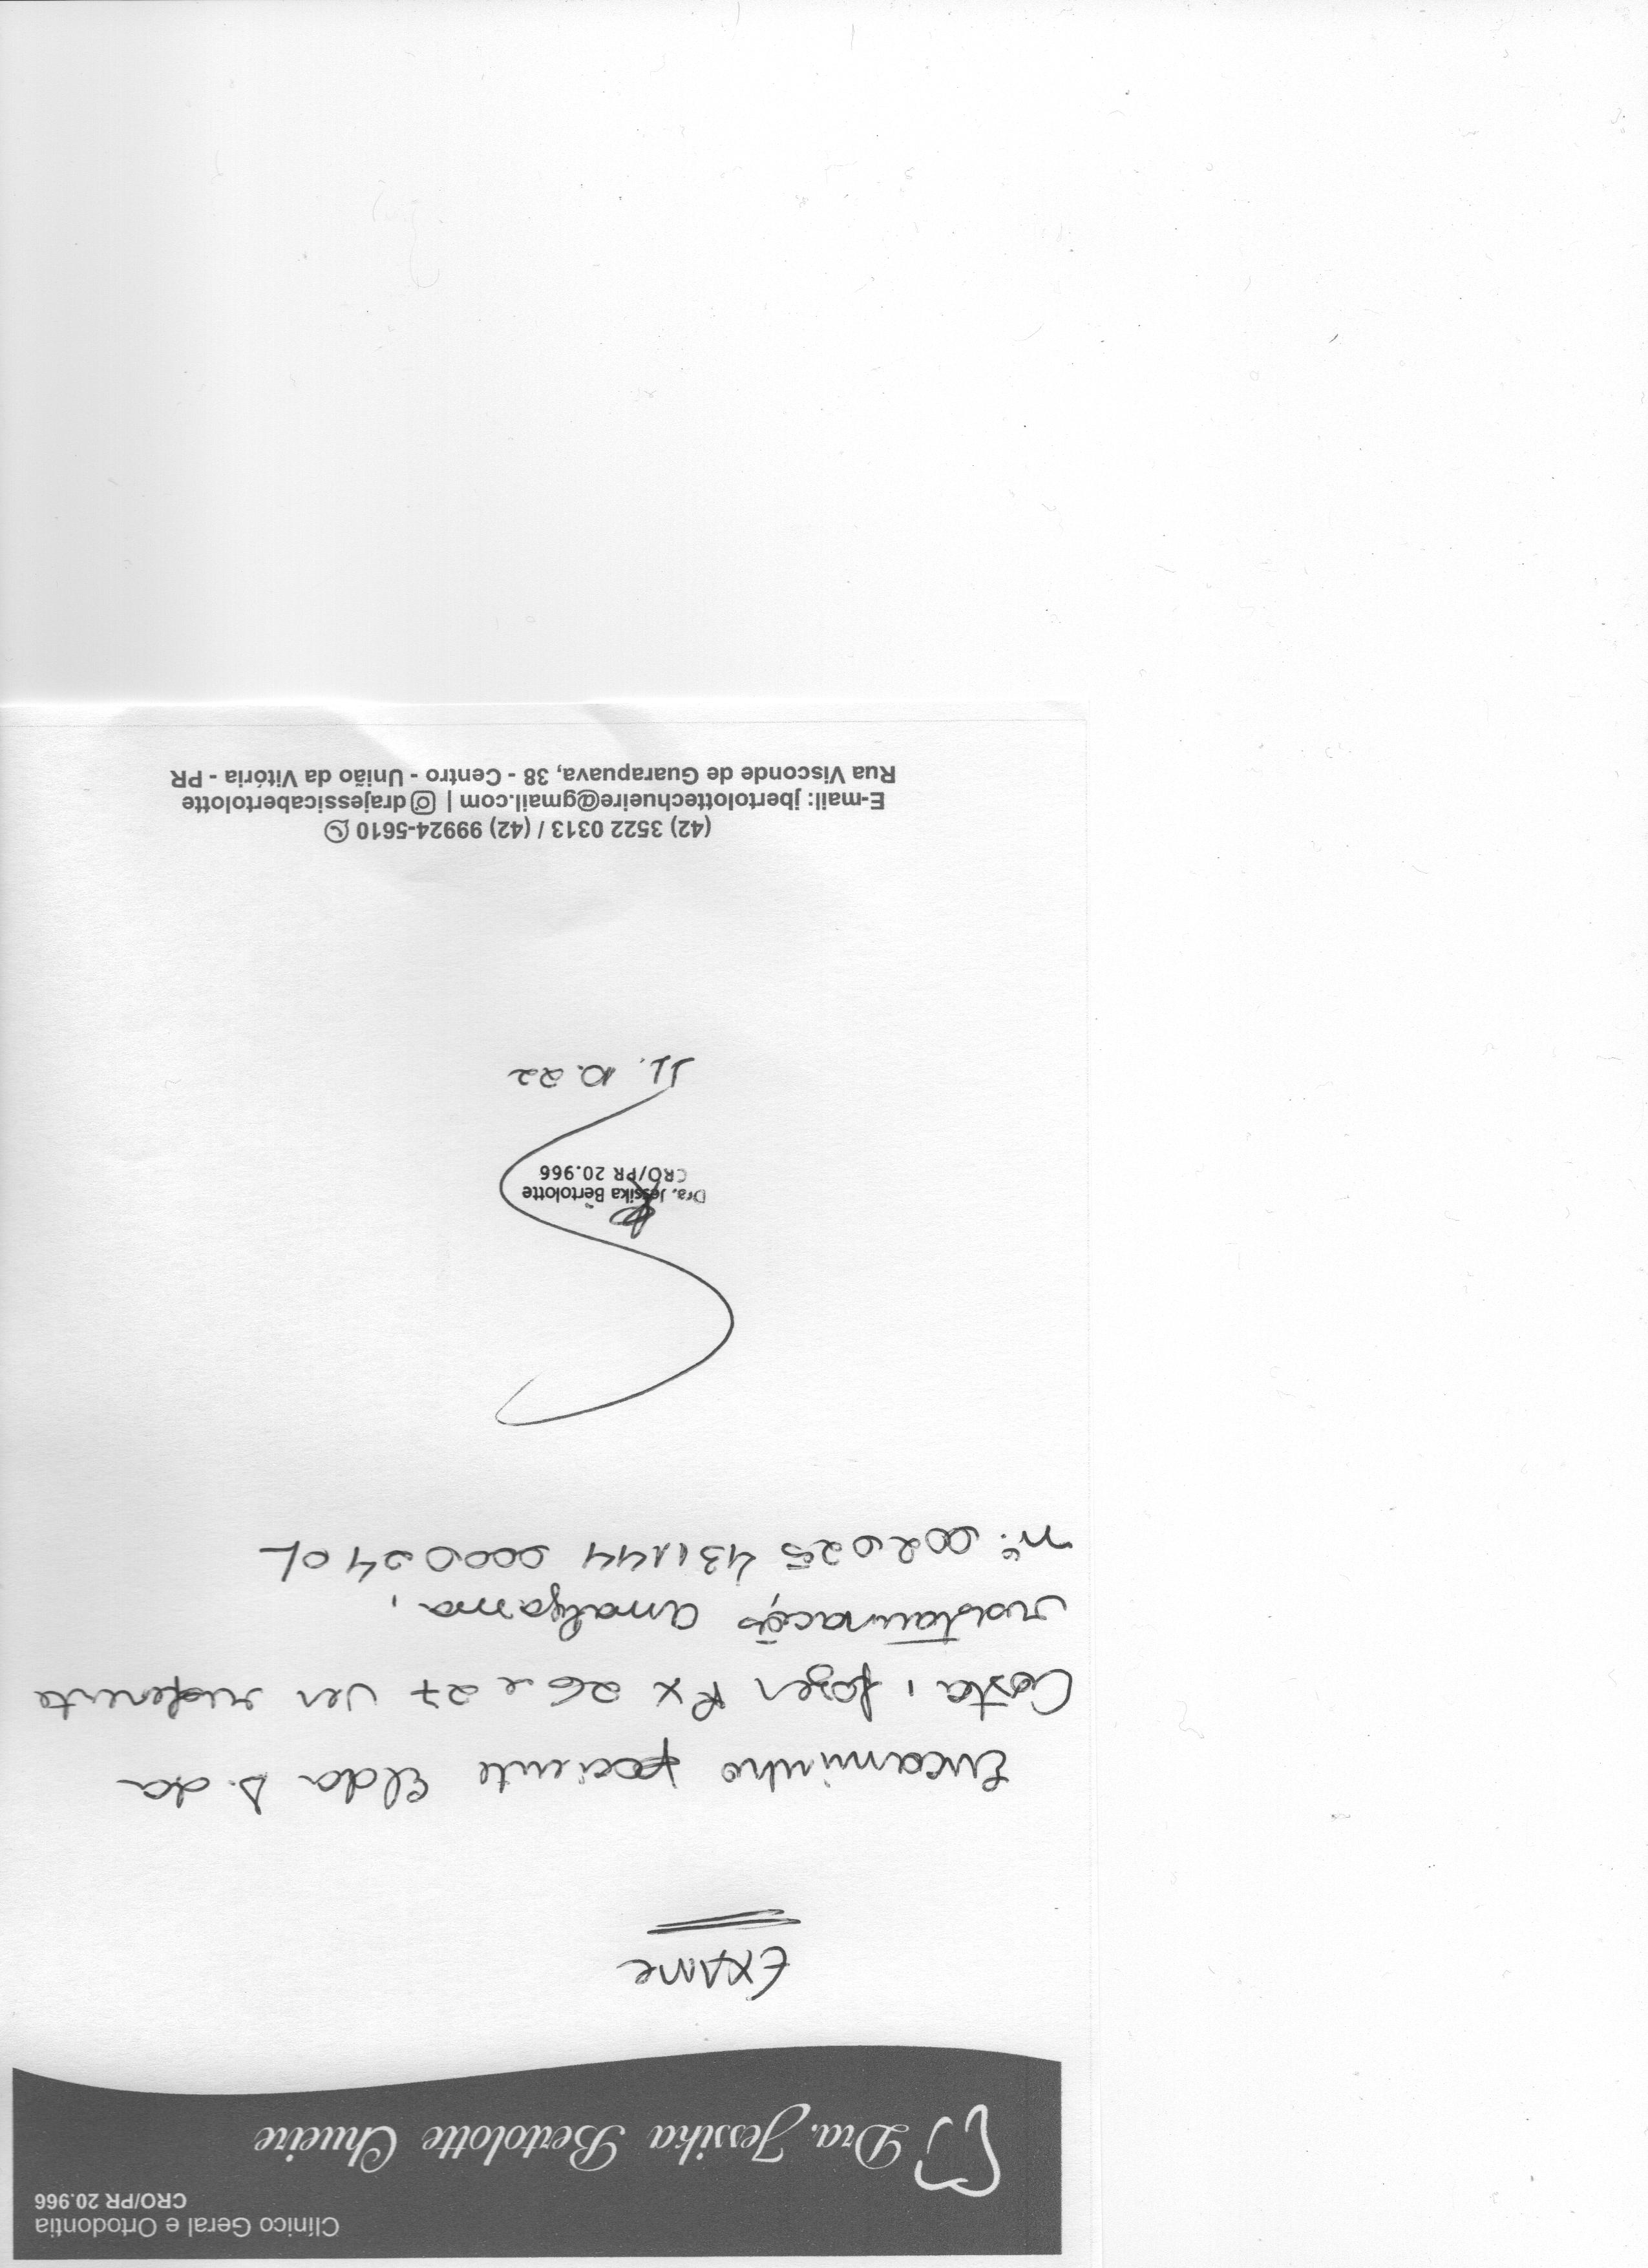 Clínico Geral e Ortodontia
CRO/PR 20.966
Dra. Jessika Bertolotte Chueire
Exame
Encaminho paciente Elda D. da
Costa, fazer Rx 26 e 27 ver referente
restauração amalgama,
nº 002025 431144 000024 01
Dra. Jessika Bertolotte
CRO/PR 20.966
11.10.22
(42) 3522 0313 / (42) 99924-5610
E-mail: jbertolottechueire@gmail.com | drajessicabertolotte
Rua Visconde de Guarapuava, 38 - Centro - União da Vitória - PR